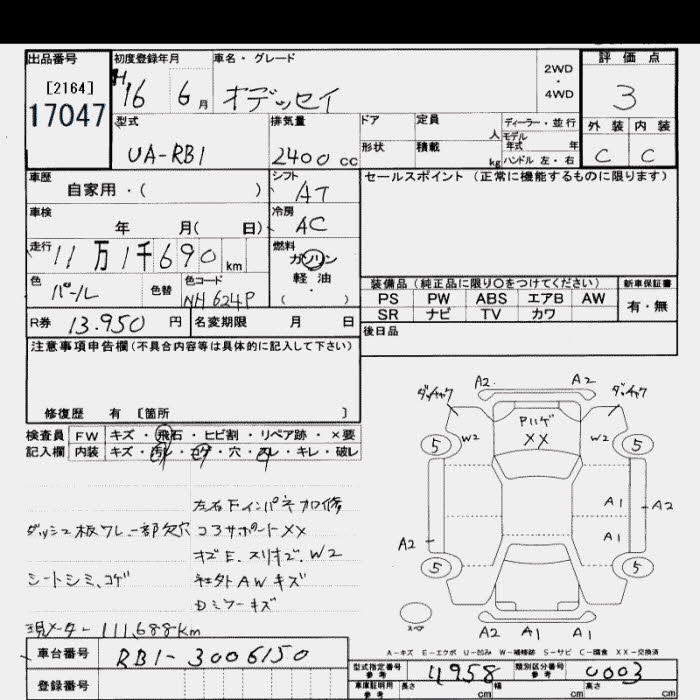 出品番号 初度登録年月 車名・グレード 評価点
[2164] H16 6月 オデッセイ 2WD・4WD 3
17047
型式 排気量 ドア 定員 人 ディーラー・並行 外装 内装
UA-RB1 2400cc 形状 積載 kg モデル年式 年 ハンドル 左・右 C C
車歴 シフト セールスポイント(正常に機能するものに限ります)
自家用・( ) AT
車検 冷房
年 月( 日) AC
走行 燃料
11万1千690km ガソリン
軽油
( ・ )
色 色替 色コード 装備品(純正品に限り○をつけてください) 新車保証書
パール NH624P PS PW ABS エアB AW 有・無
R券 13.950円 名変期限 月 日 SR ナビ TV カワ
後日品
注意事項申告欄(不具合内容等は具体的に記入して下さい)
修復歴 有 [箇所 ]
検査員 FW キズ・飛石・ヒビ割・リペア跡・×要
記入欄 内装 キズ・汚レ・コゲ・穴・スレ・キレ・破レ
左右Fインパネ加修
ダッシュ板ワレ一部欠穴 コアサポートXX
スリキズ.W2
シートシミ、コゲ 社外AWキズ
Dミラーキズ
現メーター 111,688km
A2 A2
5 W2 XX W2 5
A1 A2
A2 A1
5 5
スペ
A2 A1 A1
A-キズ E-エクボ U-凹み W-補修跡 S-サビ C-腐食 XX-交換済
車台番号 RB1-3006150 型式指定番号 参考 11958 類別区分番号 参考 0003
登録番号 車庫証明用 参考 長さ cm 幅 cm 高さ cm